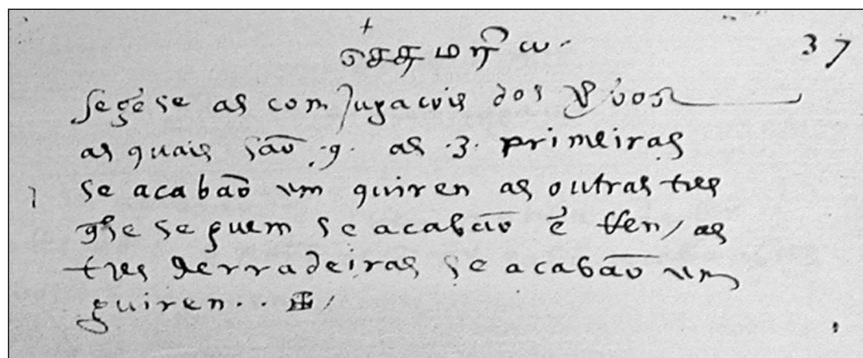 +
செசு மரிய . 37
segẽse as comJugacois dos Vẽbos
as quais são .9. as .3. primeiras
1 se acabão um quiren as outras tres
q̃ se seguem se acabão ẽ tten, as
tres derradeiras se acabão um
guiren . .